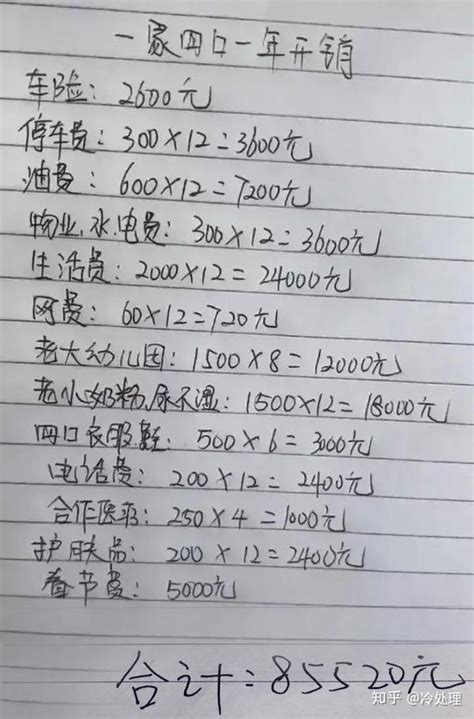 一家四口一年开销
车险：2600元
停车费：300×12=3600元
油费：600×12=7200元
物业、水、电费：300×12=3600元
生活费：2000×12=24000元
网费：60×12=720元
老大幼儿园：1500×8=12000元
老小奶粉、尿不湿：1500×12=18000元
四口衣服鞋：500×6=3000元
电话费：200×12=2400元
合作医疗：250×4=1000元
护肤品：200×12=2400元
春节费：5000元
合计：85520元
知乎 @冷处理